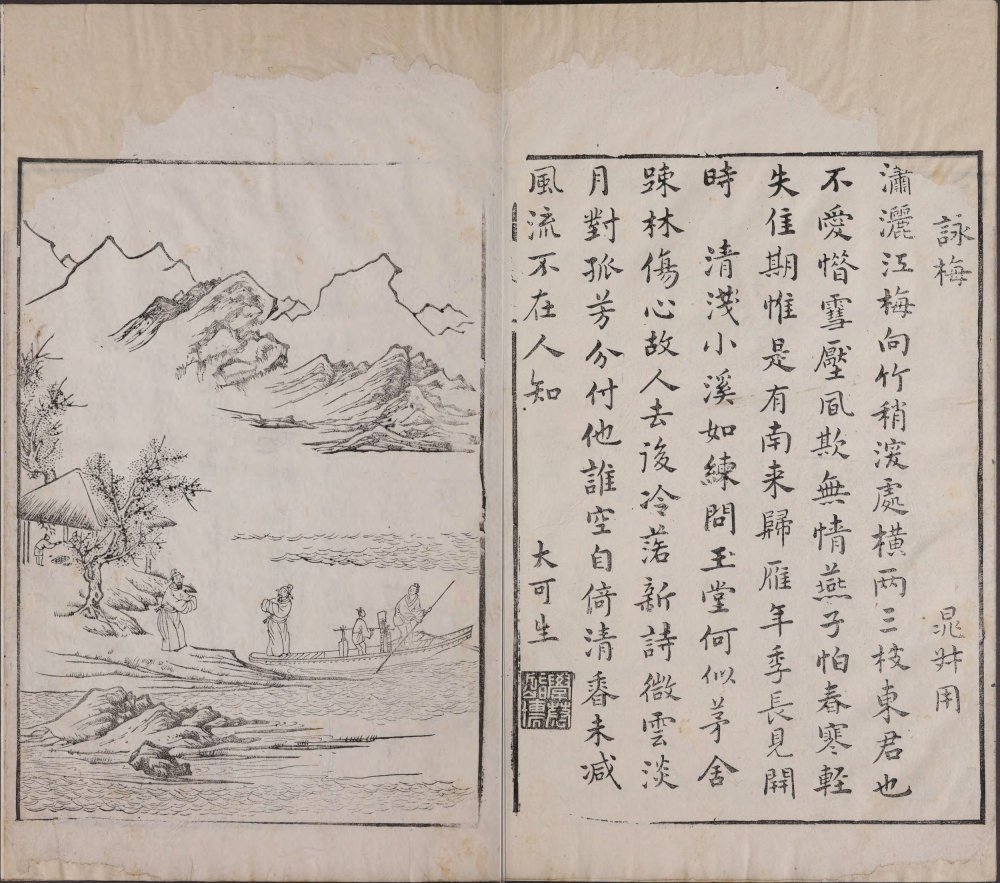 詠梅
晁叔用
瀟灑江梅向竹稍深處橫两三枝東君也
不愛惜雪壓風欺無情燕子怕春寒輕
失佳期惟是有南来歸雁年秊長見開
時　清淺小溪如練問玉堂何似茅舍
踈林傷心故人去後冷落新詩微雲淡
月對孤芳分付他誰空自倚清香未減
風流不在人知
大可生